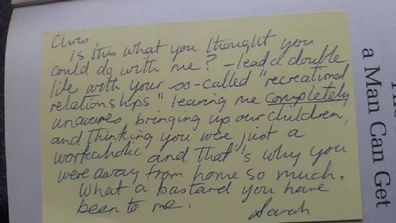 Chris,
Is this what you thought you
could do with me? – lead a double
life with your so-called "recreational
relationships" leaving me completely
unawares, bringing up our children,
and thinking you were just a
workaholic and that's why you
were away from home so much.
What a bastard you have
been to me.
Sarah
a Man Can Get